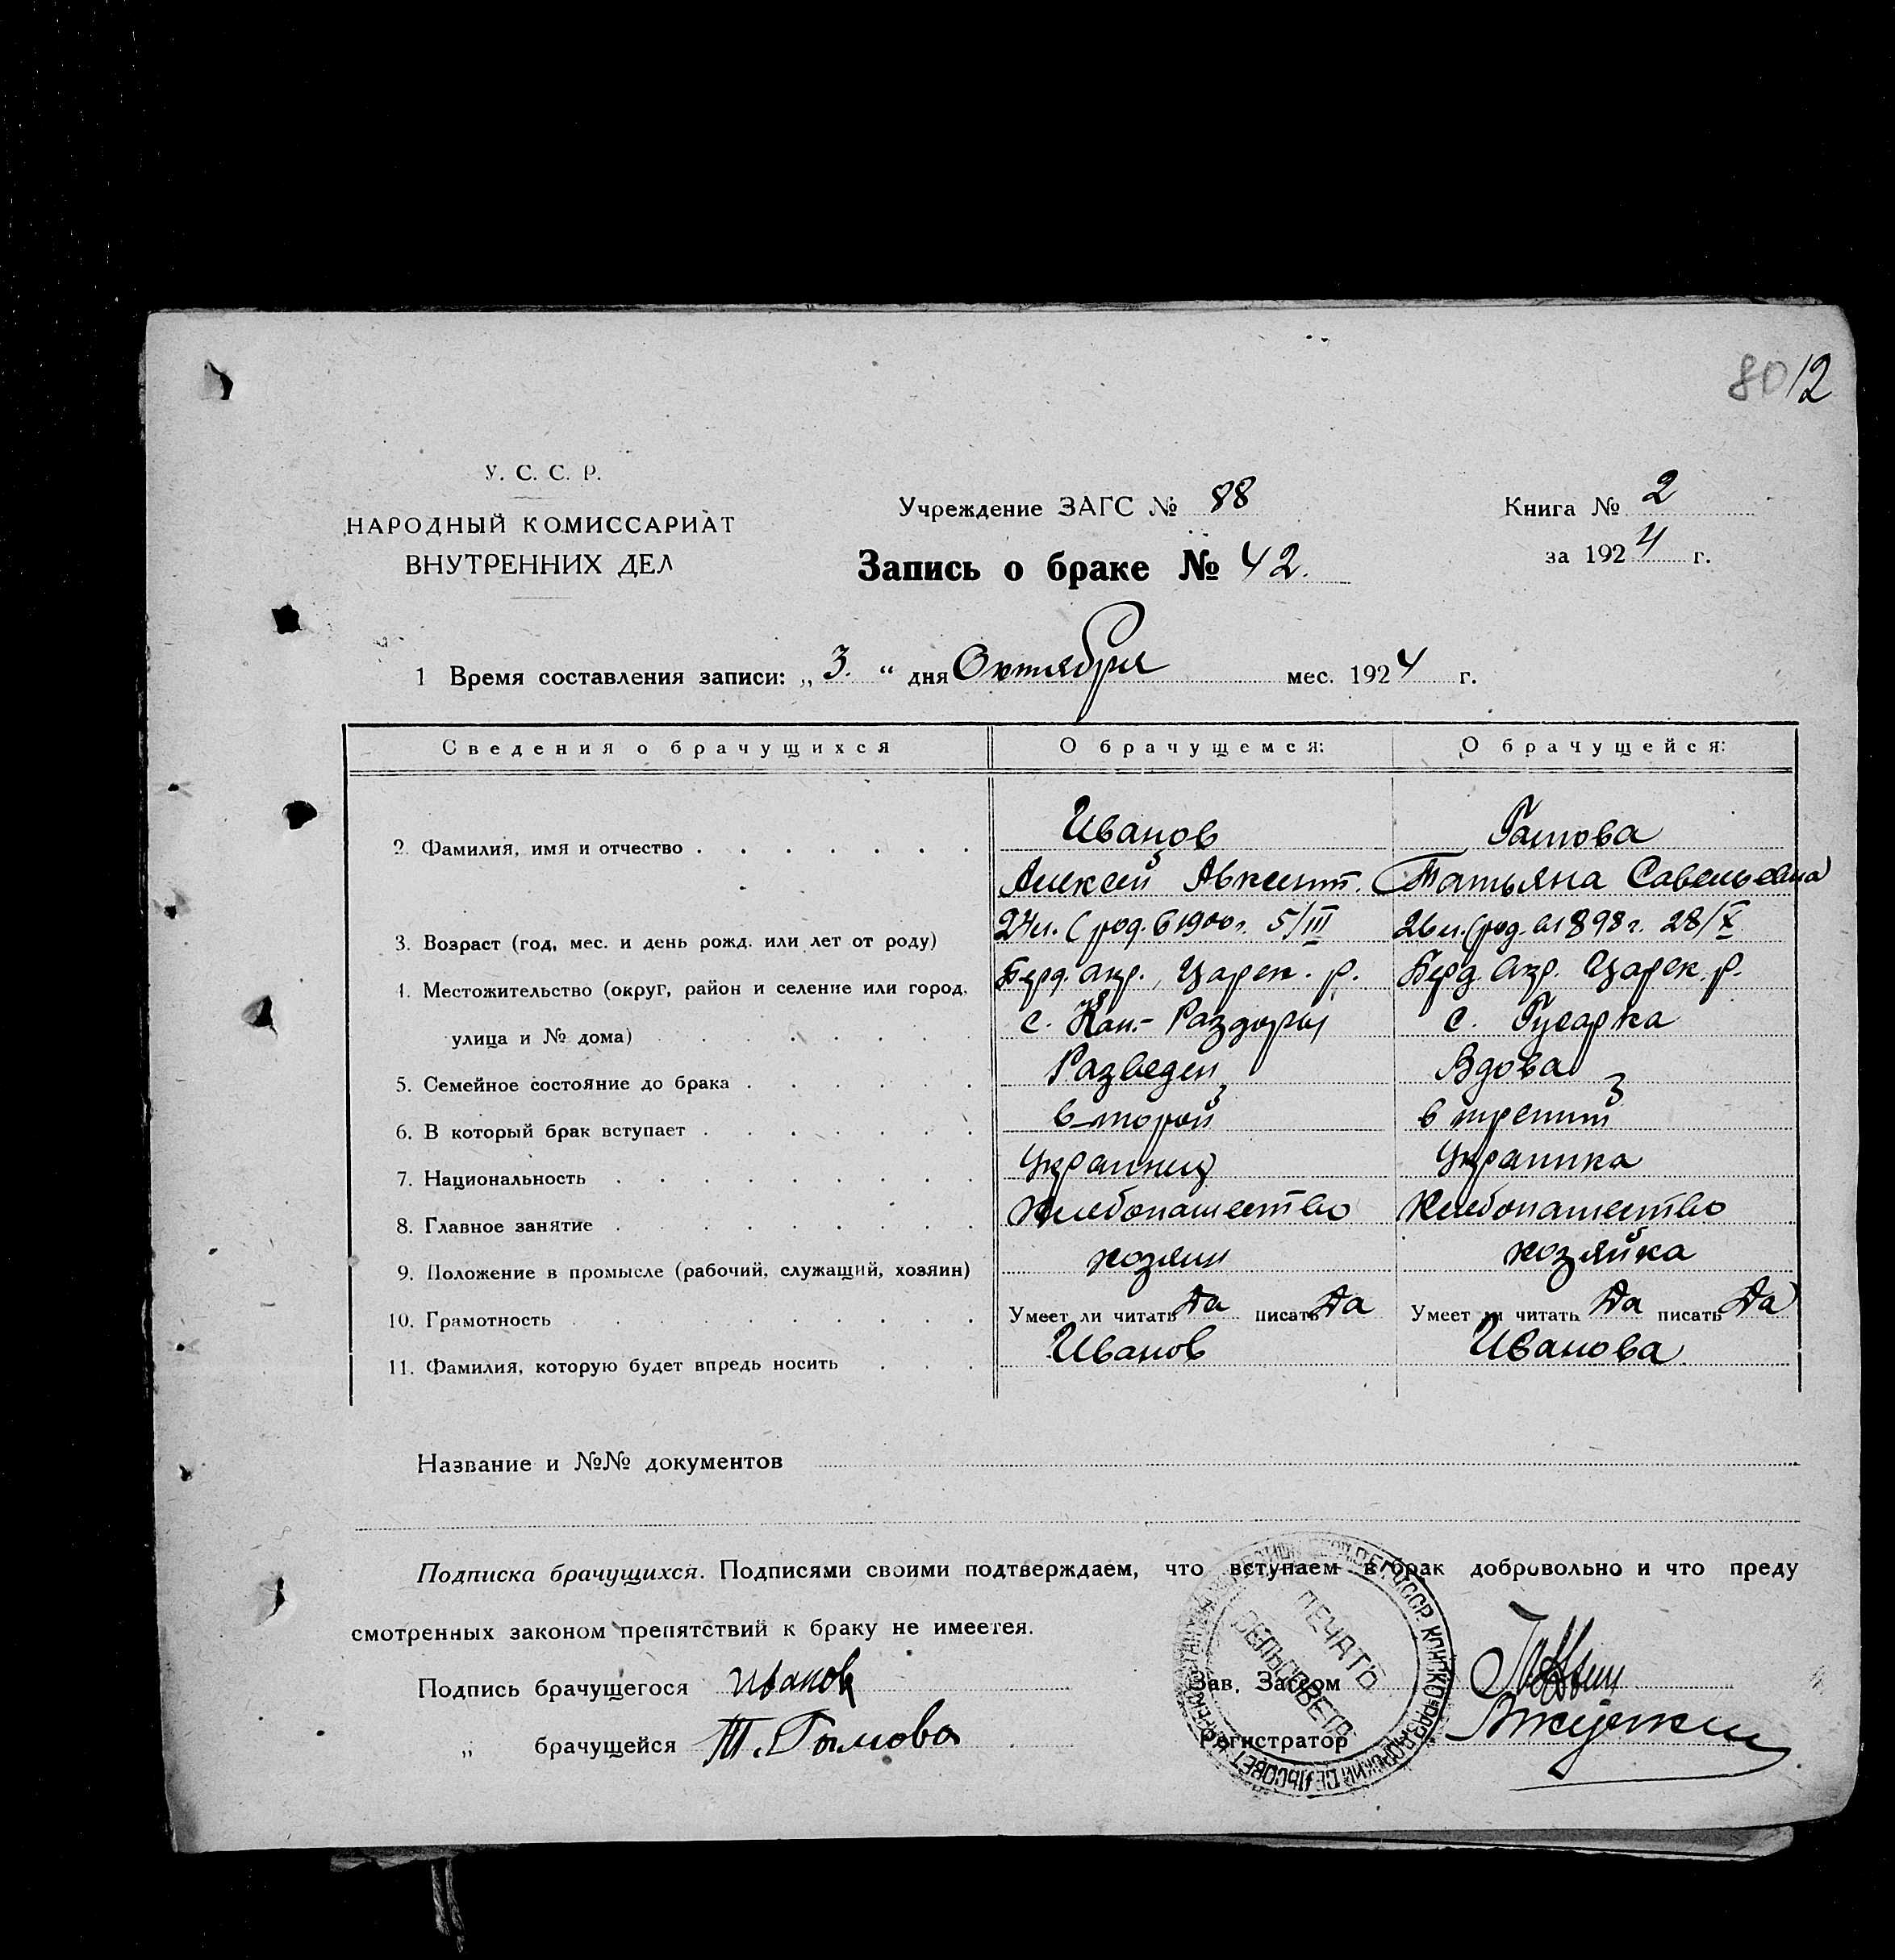 80 12
У. С. С. Р.
НАРОДНЫЙ КОМИССАРИАТ
ВНУТРЕННИХ ДЕЛ
Учреждение ЗАГС № 88
Запись о браке № 42.
Книга № 2
за 1924 г.
1 Время составления записи: „ 3. “ дня Октября мес. 1924 г.
Сведения о брачущихся О брачущемся: О брачущейся:
2. Фамилия, имя и отчество Иванов
Алексей Авксент. Татьяна Савельевна
3. Возраст (год, мес. и день рожд. или лет от роду) 24 л. (род. в 1900 г. 5/III 26 л. (род. в 1898 г. 28/X
4. Местожительство (округ, район и селение или город, Берд. окр., Царек. р. Берд. окр. Царек. р.
улица и № дома) с. Кон.- Раздоры с. Гусарка
5. Семейное состояние до брака Разведен Вдова
6. В который брак вступает второй в третий
7. Национальность Украинец Украинка
8. Главное занятие Хлебопашество Хлебопашество
9. Положение в промысле (рабочий, служащий, хозяин) хозяин хозяйка
10. Грамотность Умеет ли читать Да писать Да Умеет ли читать Да писать Да
11. Фамилия, которую будет впредь носить Иванов Иванова
Название и №№ документов
Подписка брачущихся. Подписями своими подтверждаем, что вступаем в брак добровольно и что преду
смотренных законом препятствий к браку не имеется.
Подпись брачущегося Иванов
Зав. Загсом
„ брачущейся Т.
Регистратор
ПЕЧАТЬ
СЕЛЬСОВЕТА